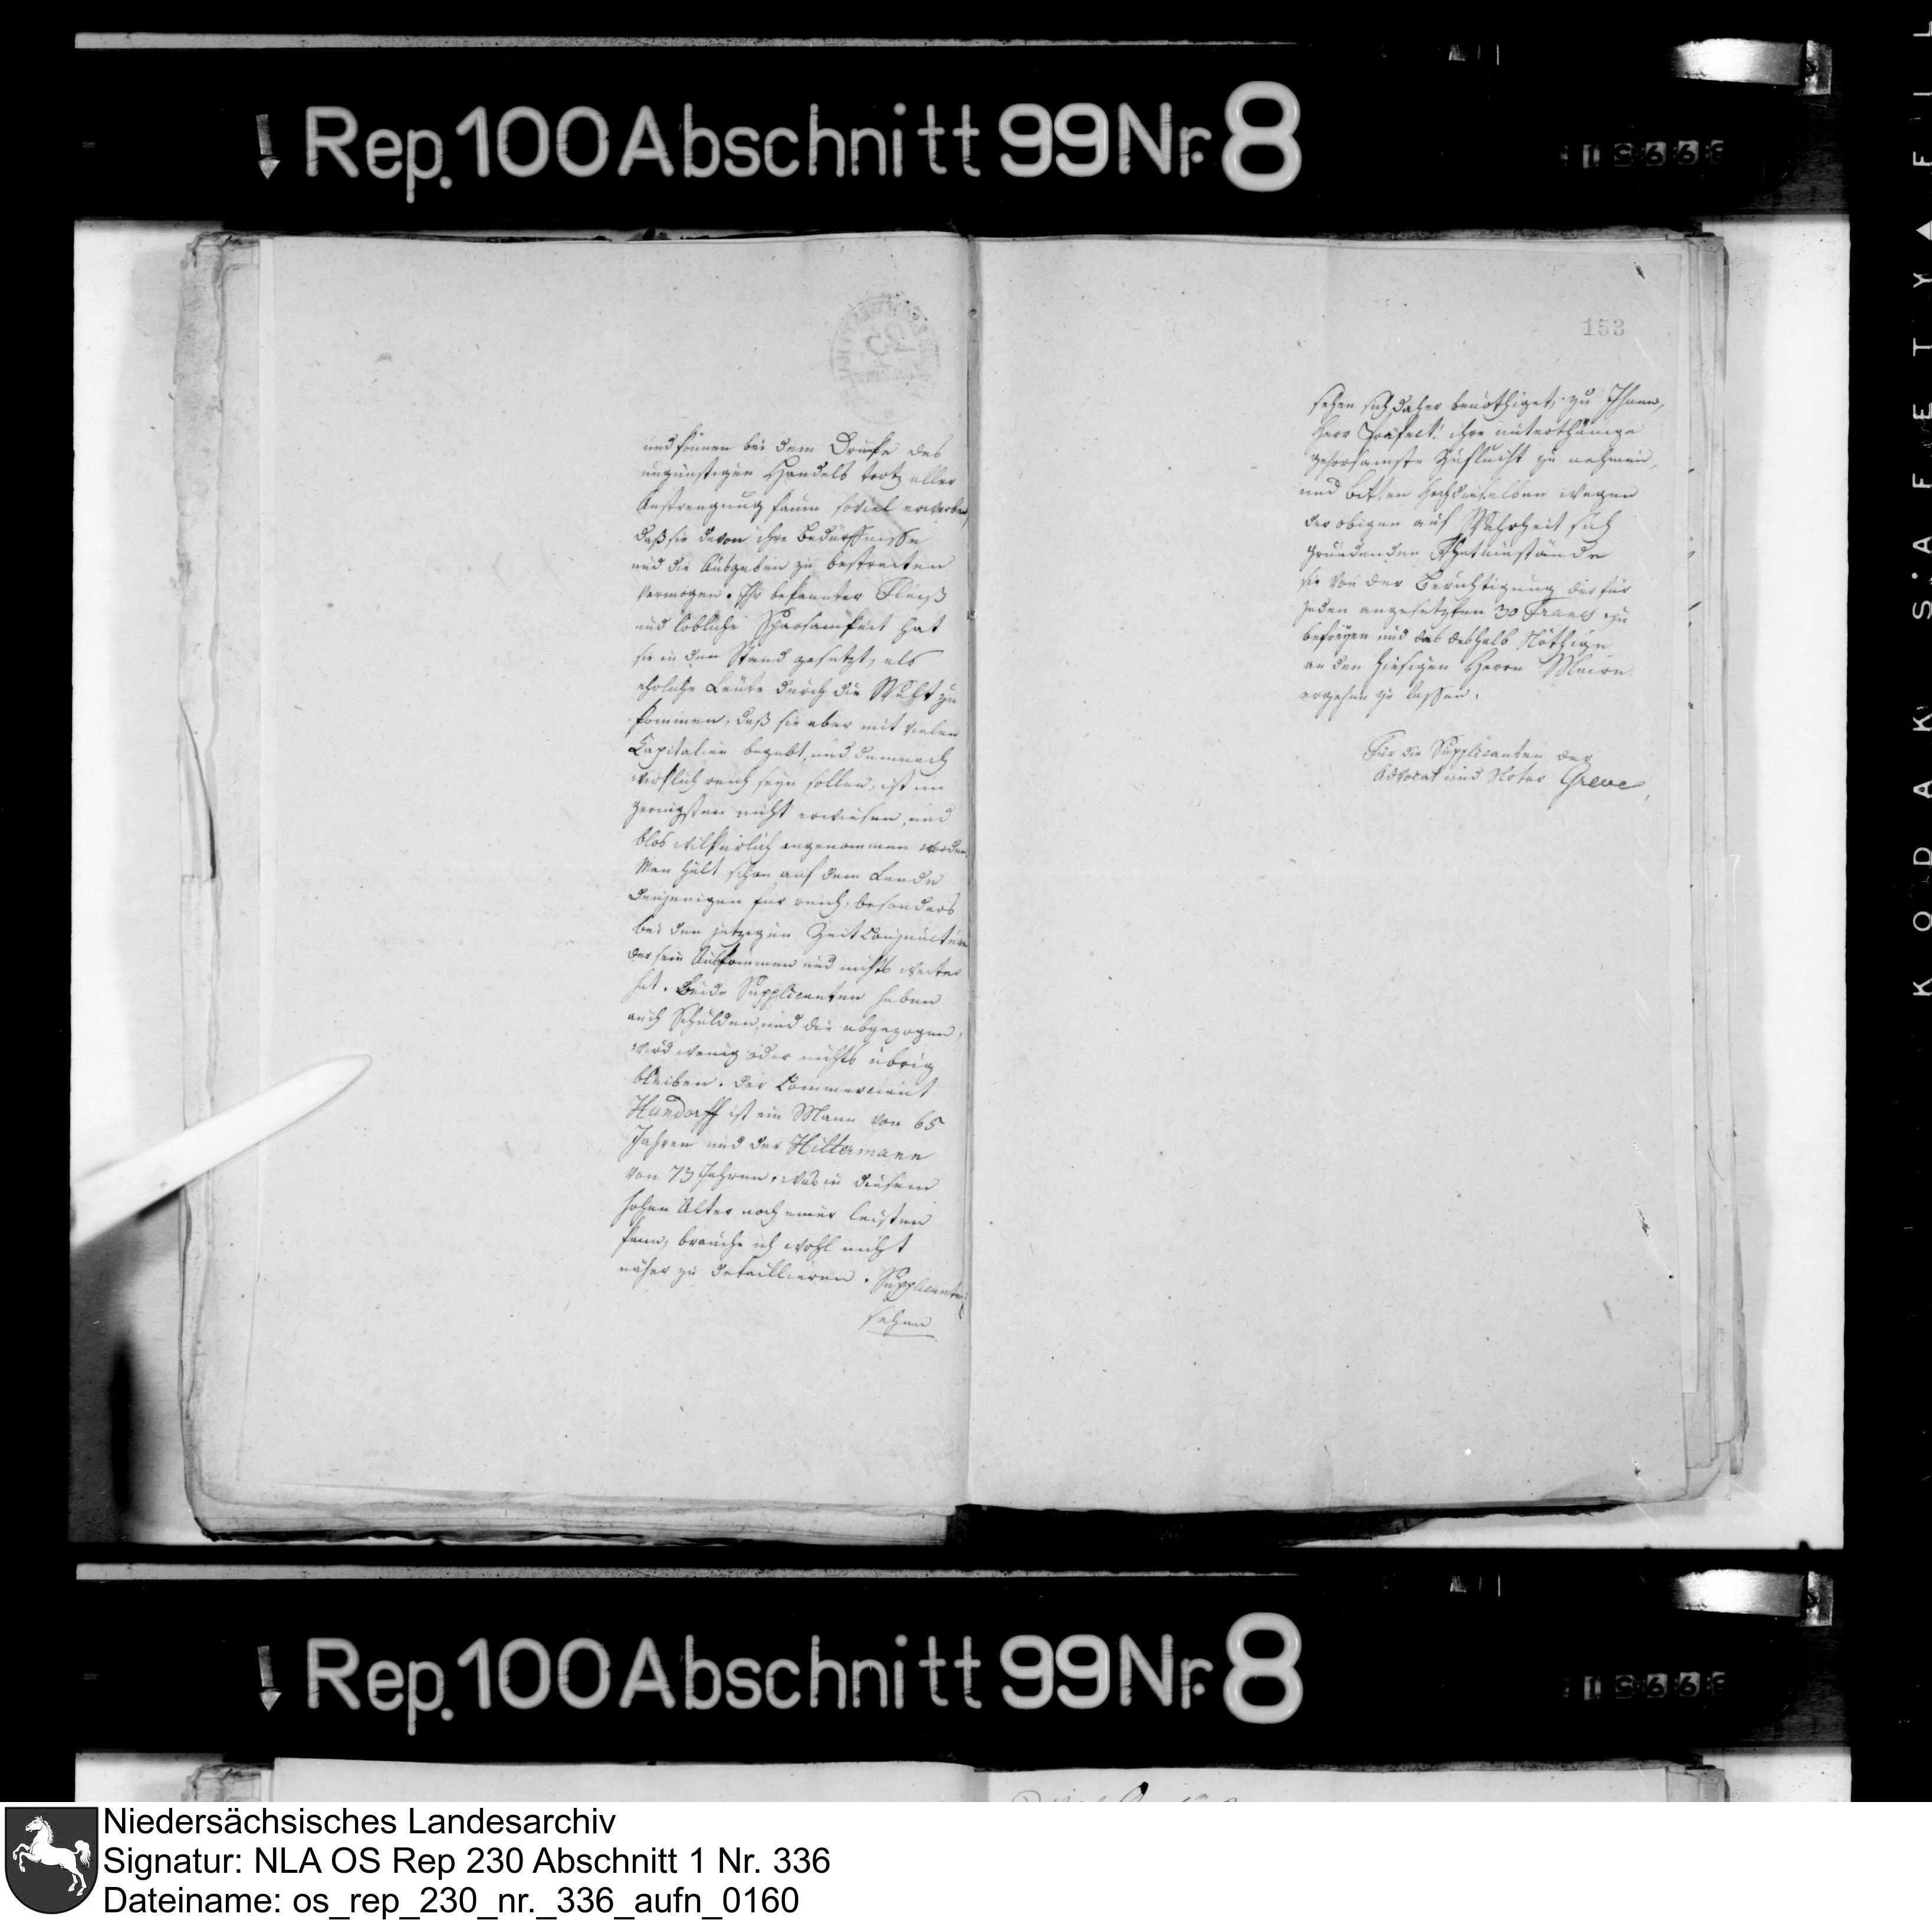 Rep. 100 Abschnitt 99 Nr. 8
153
und können bei dem Drucke des
ungünstigen Handels trotz aller
Anstrengung kaum soviel erwerben,
daß sie davon ihre Bedürffnisse
und die Ausgaben zu bestreiten
vermögen. Ihr bekannter Fleiß
und löbliche Sparsamkeit hat
sie in den Stand gesetzt, als
ehrliche Leute durch die Welt zu
kommen, daß sie aber mit vielen
Capitalien begabt, und demnach
wirklich reich seyn sollen, ist im
geringsten nicht erwiesen, und
blos willkürlich angenommen worden.
Man hält schon auf dem Lande
denjenigen für reich, besonders
bei den jetzigen Zeit Conjuncturen
der sein Auskommen und nichts weiter
hat. Beide Supplicanten haben
auch Schulden, und die abgezogen,
wird wenig oder nichts übrig
bleiben. Der Commerciant
Handorff ist ein Mann von 65
Jahren und der Hiltermann
von 73 Jahren, was in diesem
hohen Alter noch einer leisten
kann, brauche ich wohl nicht
näher zu detaillieren. Supplicanten
sehen
sehen sich daher benöthiget, zu Ihnen,
Herr Präfect! ihre unterthänige
gehorsamste Zuflucht zu nehmen,
und bitten hochdieselben wegen
der obigen auf Wahrheit sich
gründenden Thatumstände
sie von der Berichtigung der für
jeden angesetzten 30 Francs zu
befreyen und das deshalb Nöthige
an den hiesigen Herrn Maire
ergehen zu lassen.
Für die Supplicanten der
Advocat und Notar Greve
KODAK SAFETY FIL
Rep. 100 Abschnitt 99 Nr. 8
Niedersächsisches Landesarchiv
Signatur: NLA OS Rep 230 Abschnitt 1 Nr. 336
Dateiname: os_rep_230_nr._336_aufn_0160